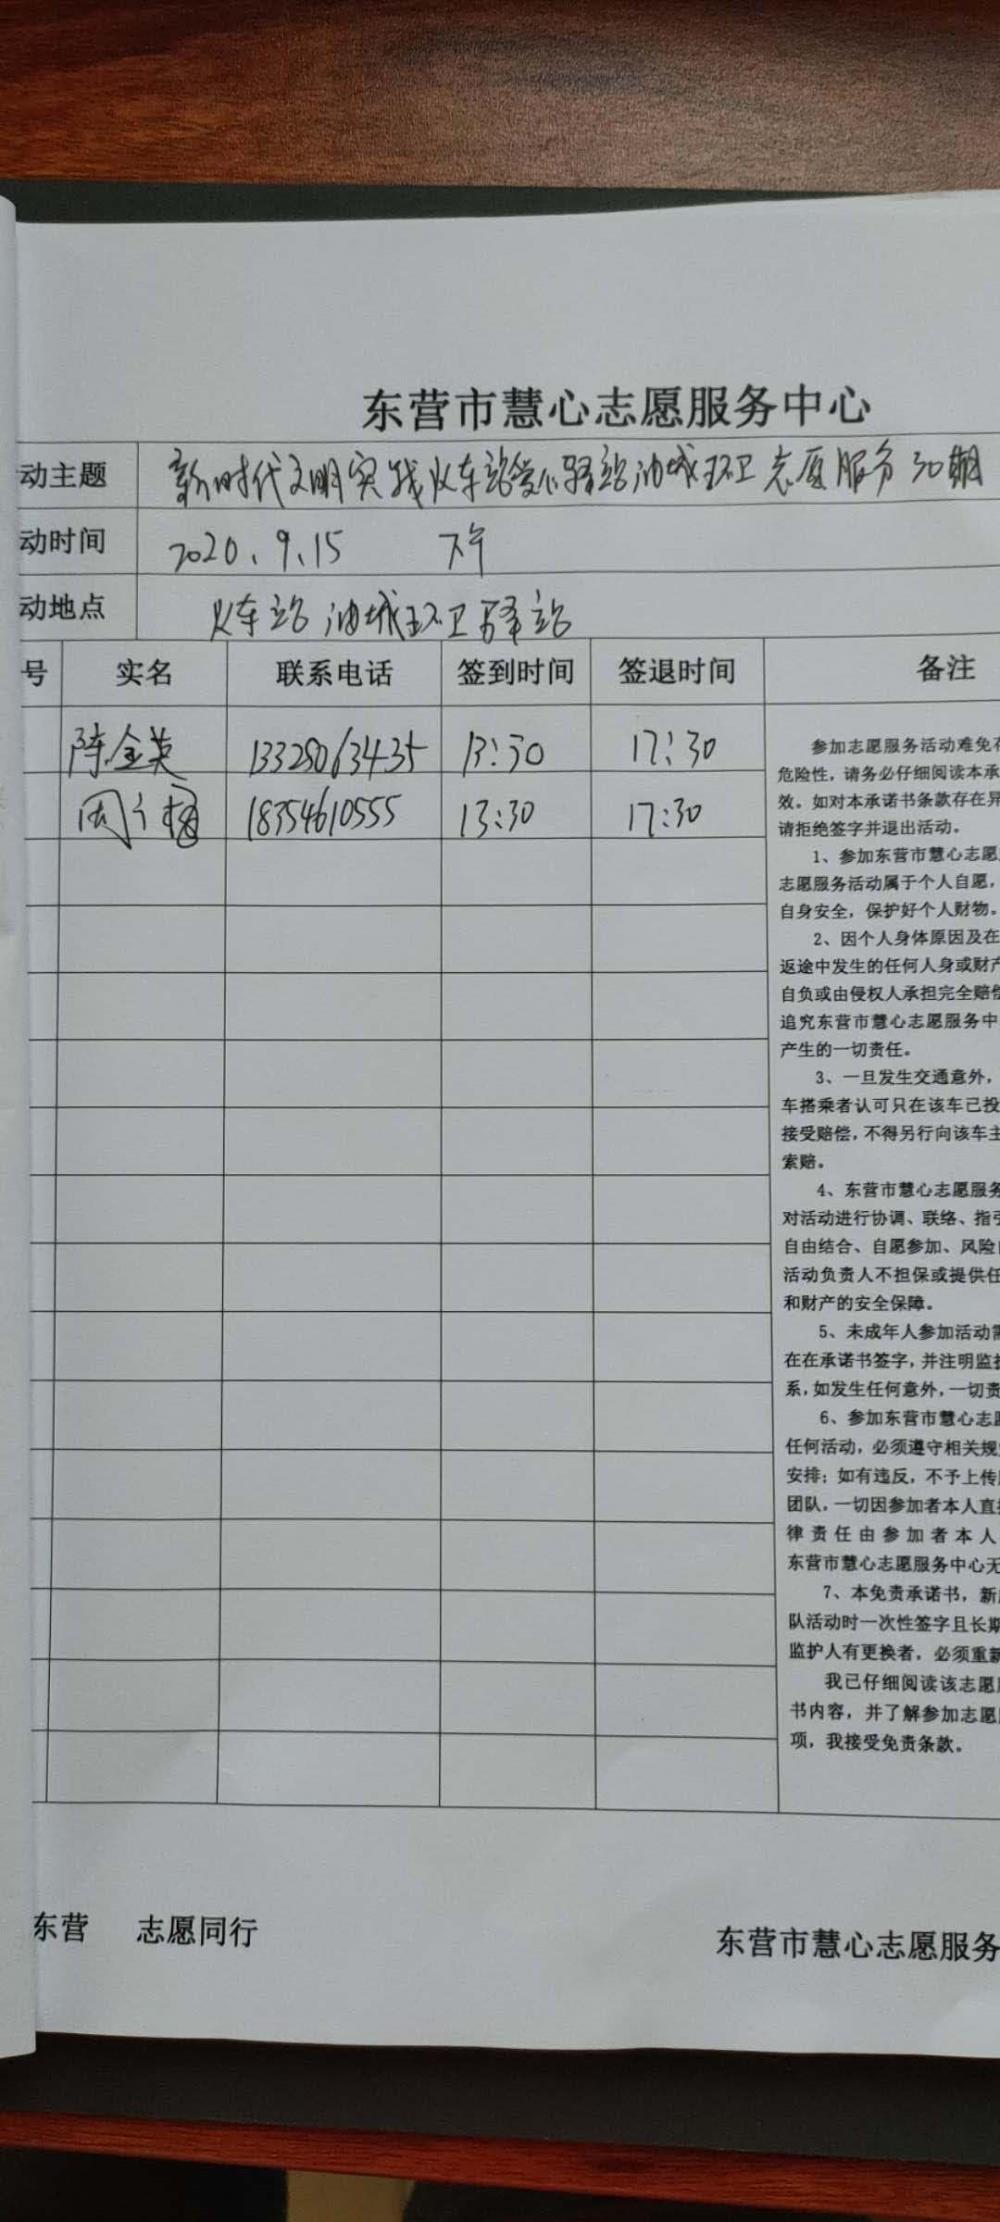 东营市慧心志愿服务中心
动主题 新时代文明实践火车站爱心驿站油城环卫志愿服务30期
动时间 2020.9.15 下午
动地点 火车站油城环卫驿站
号 实名 联系电话 签到时间 签退时间 备注
陈金英 13328063435 13:30 17:30
周 18354610555 13:30 17:30
参加志愿服务活动难免存
危险性，请务必仔细阅读本承
效。如对本承诺书条款存在异
请拒绝签字并退出活动。
1、参加东营市慧心志愿
志愿服务活动属于个人自愿，
自身安全，保护好个人财物。
2、因个人身体原因及在
返途中发生的任何人身或财产
自负或由侵权人承担完全赔偿
追究东营市慧心志愿服务中
产生的一切责任。
3、一旦发生交通意外，
车搭乘者认可只在该车已投
接受赔偿，不得另行向该车主
索赔。
4、东营市慧心志愿服务
对活动进行协调、联络、指引
自由结合、自愿参加、风险
活动负责人不担保或提供任
和财产的安全保障。
5、未成年人参加活动需
在在承诺书签字，并注明监护
系，如发生任何意外，一切责
6、参加东营市慧心志愿
任何活动，必须遵守相关规
安排；如有违反，不予上传
团队，一切因参加者本人直接
律责任由参加者本人
东营市慧心志愿服务中心无
7、本免责承诺书，新
队活动时一次性签字且长期
监护人有更换者，必须重新
我已仔细阅读该志愿
书内容，并了解参加志愿
项，我接受免责条款。
东营 志愿同行 东营市慧心志愿服务